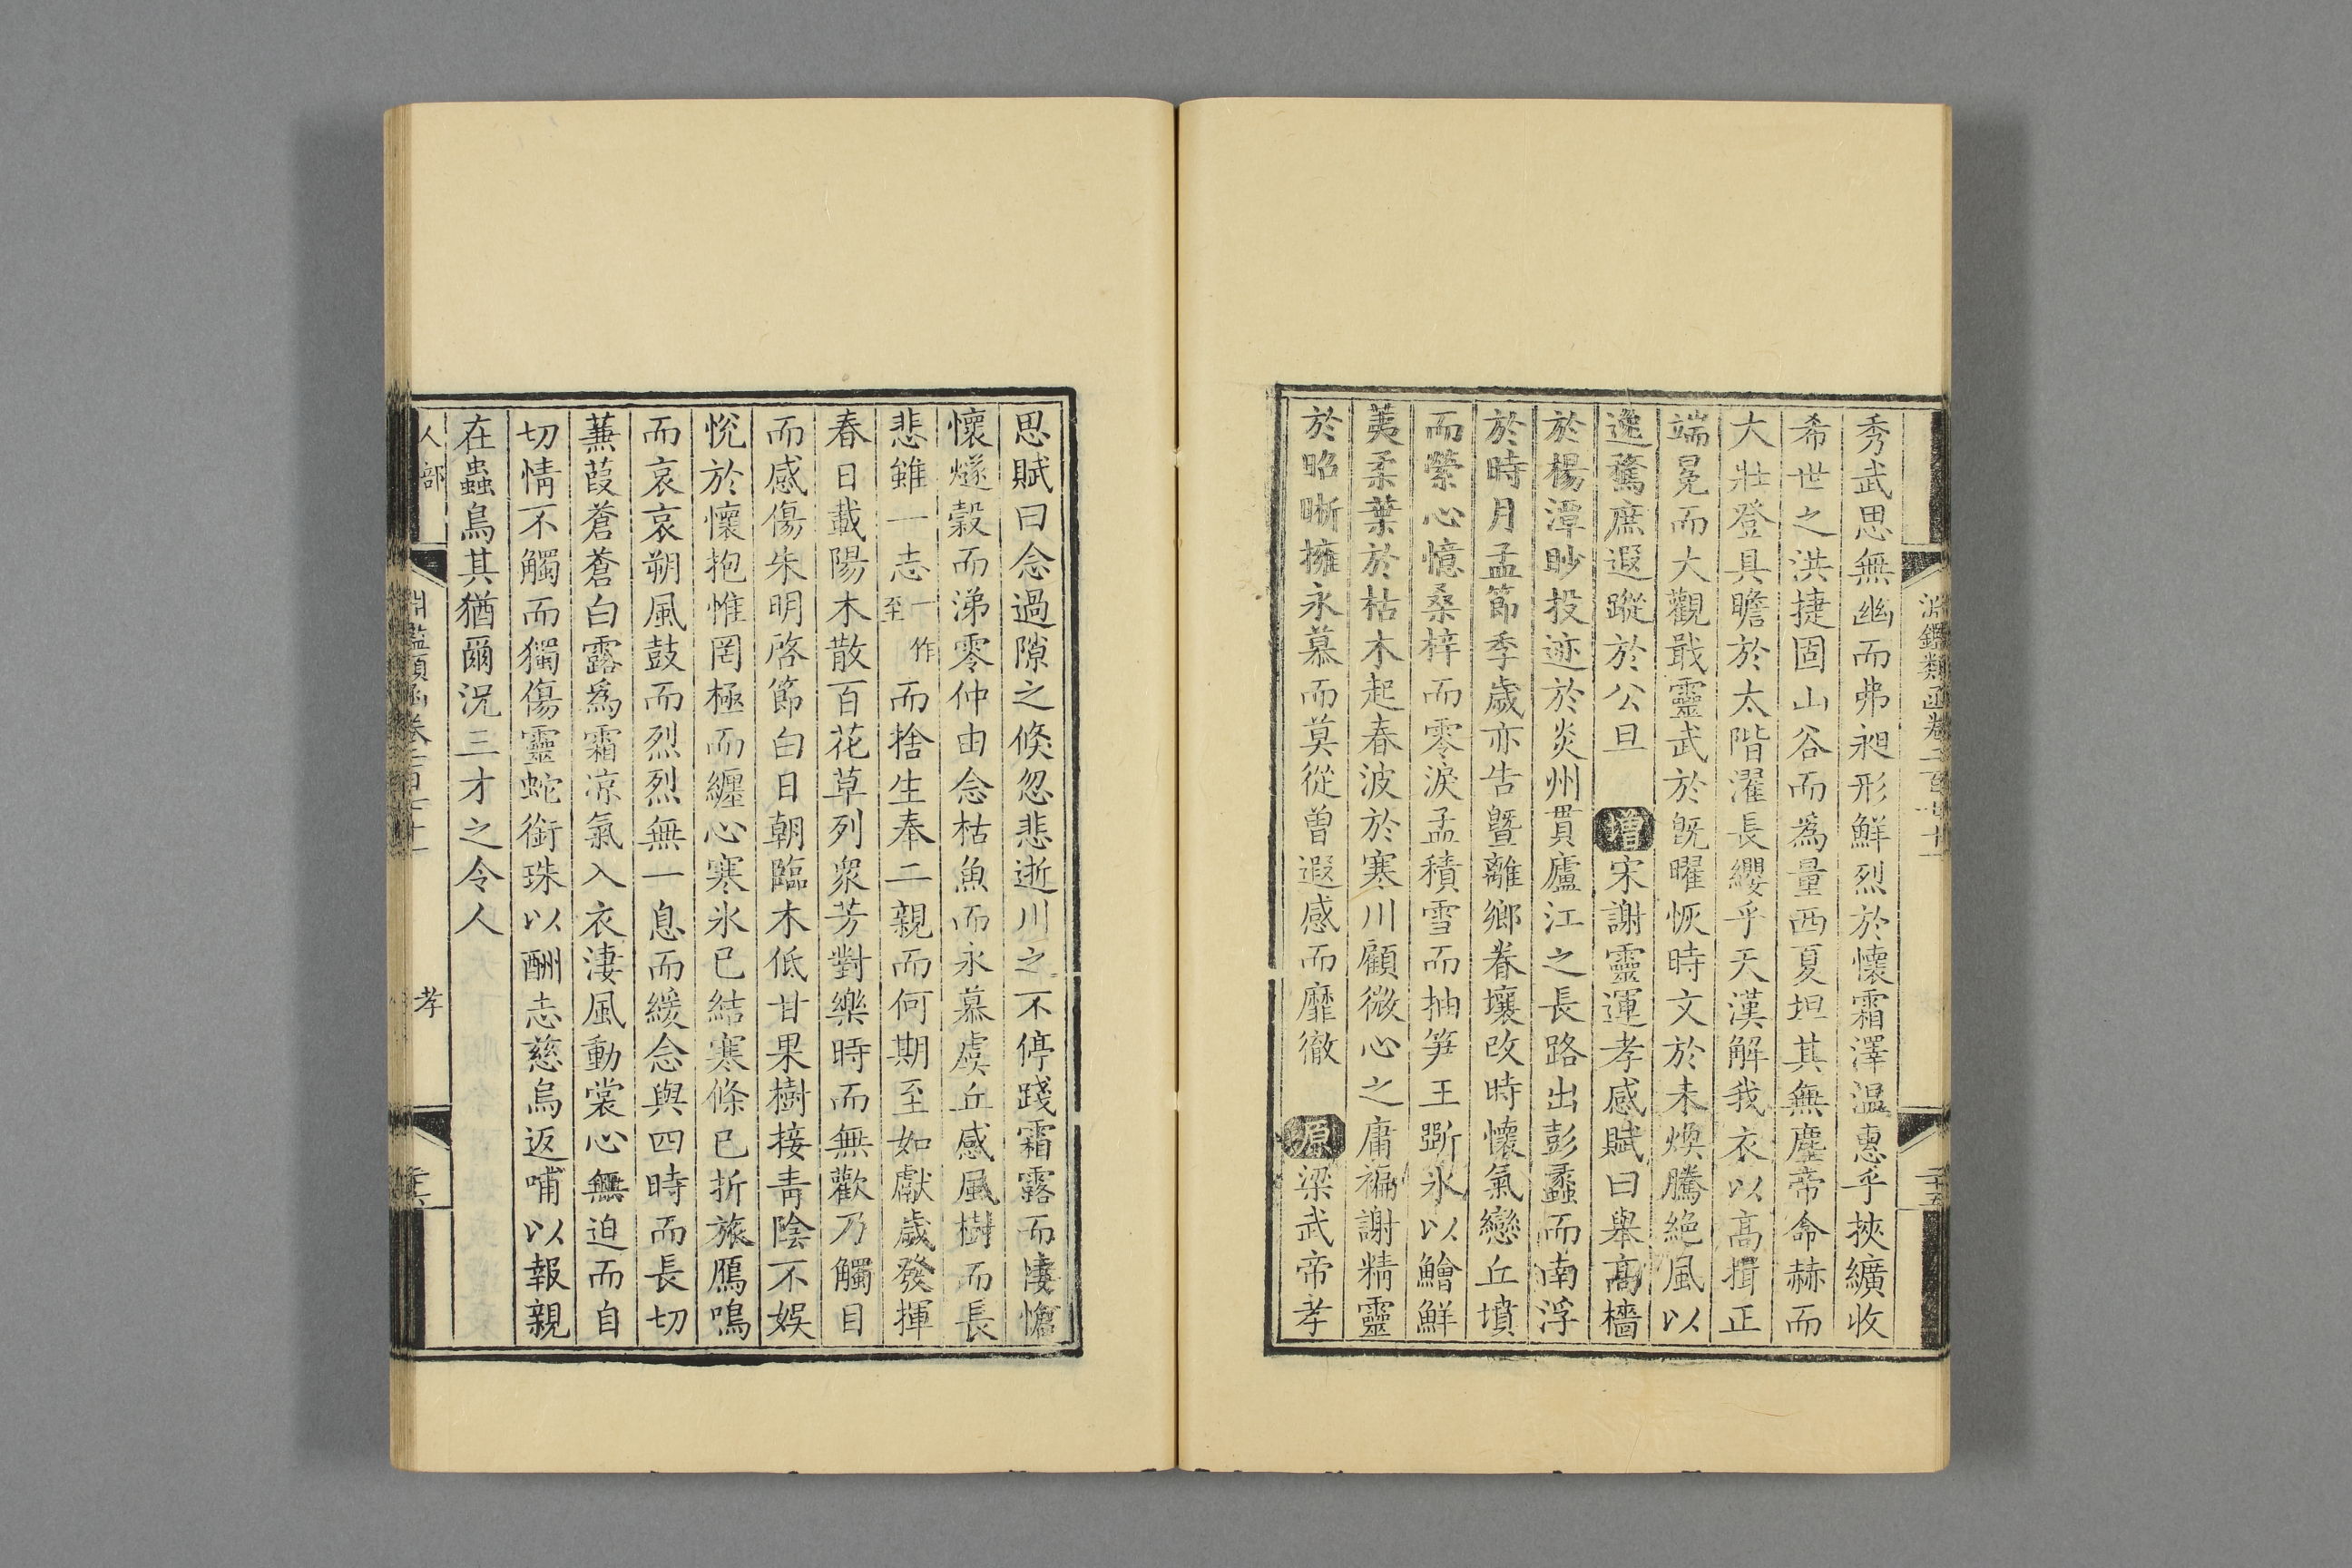 淵鑑類函卷二百七十一
二十五
秀武思無幽而弗昶形鮮烈於懷霜澤温惠乎挾纊收
希世之洪捷固山谷而爲量西夏坦其無塵帝命赫而
大壯登具瞻於太階濯長纓乎天漢解我衣以高揖正
端冕而大觀戢靈武於旣曜恢時文於未煥騰絶風以
逸騖庶遐蹤於公旦 增宋謝靈運孝感賦曰舉高檣
於楊潭眇投迹於炎州貫廬江之長路出彭蠡而南浮
於時月孟節季歲亦告曁離鄉眷壤改時懷氣戀丘墳
而縈心憶桑梓而零淚孟積雪而抽笋王斲氷以鱠鮮
荑柔葉於枯木起春波於寒川顧微心之庸褊謝精靈
於昭晣擁永慕而莫從曾遐感而靡徹 原梁武帝孝
思賦曰念過隙之倏忽悲逝川之不停踐霜露而悽愴
懷燧穀而涕零仲由念枯魚而永慕虞丘感風樹而長
悲雖一志一作至而捨生奉二親而何期至如獻歲發揮
春日載陽木散百花草列衆芳對樂時而無歡乃觸目
而感傷朱明啓節白日朝臨木低甘果樹接青陰不娛
悅於懷抱惟罔極而纏心寒氷已結寒條已折旅鴈鳴
而哀哀朔風鼓而烈烈無一息而緩念與四時而長切
蒹葭蒼蒼白露爲霜凉氣入衣淒風動裳心無迫而自
切情不觸而獨傷靈蛇銜珠以酬志慈烏返哺以報親
在蟲鳥其猶爾況三才之令人
人部
淵鑑類函卷二百七十一
孝
二十六